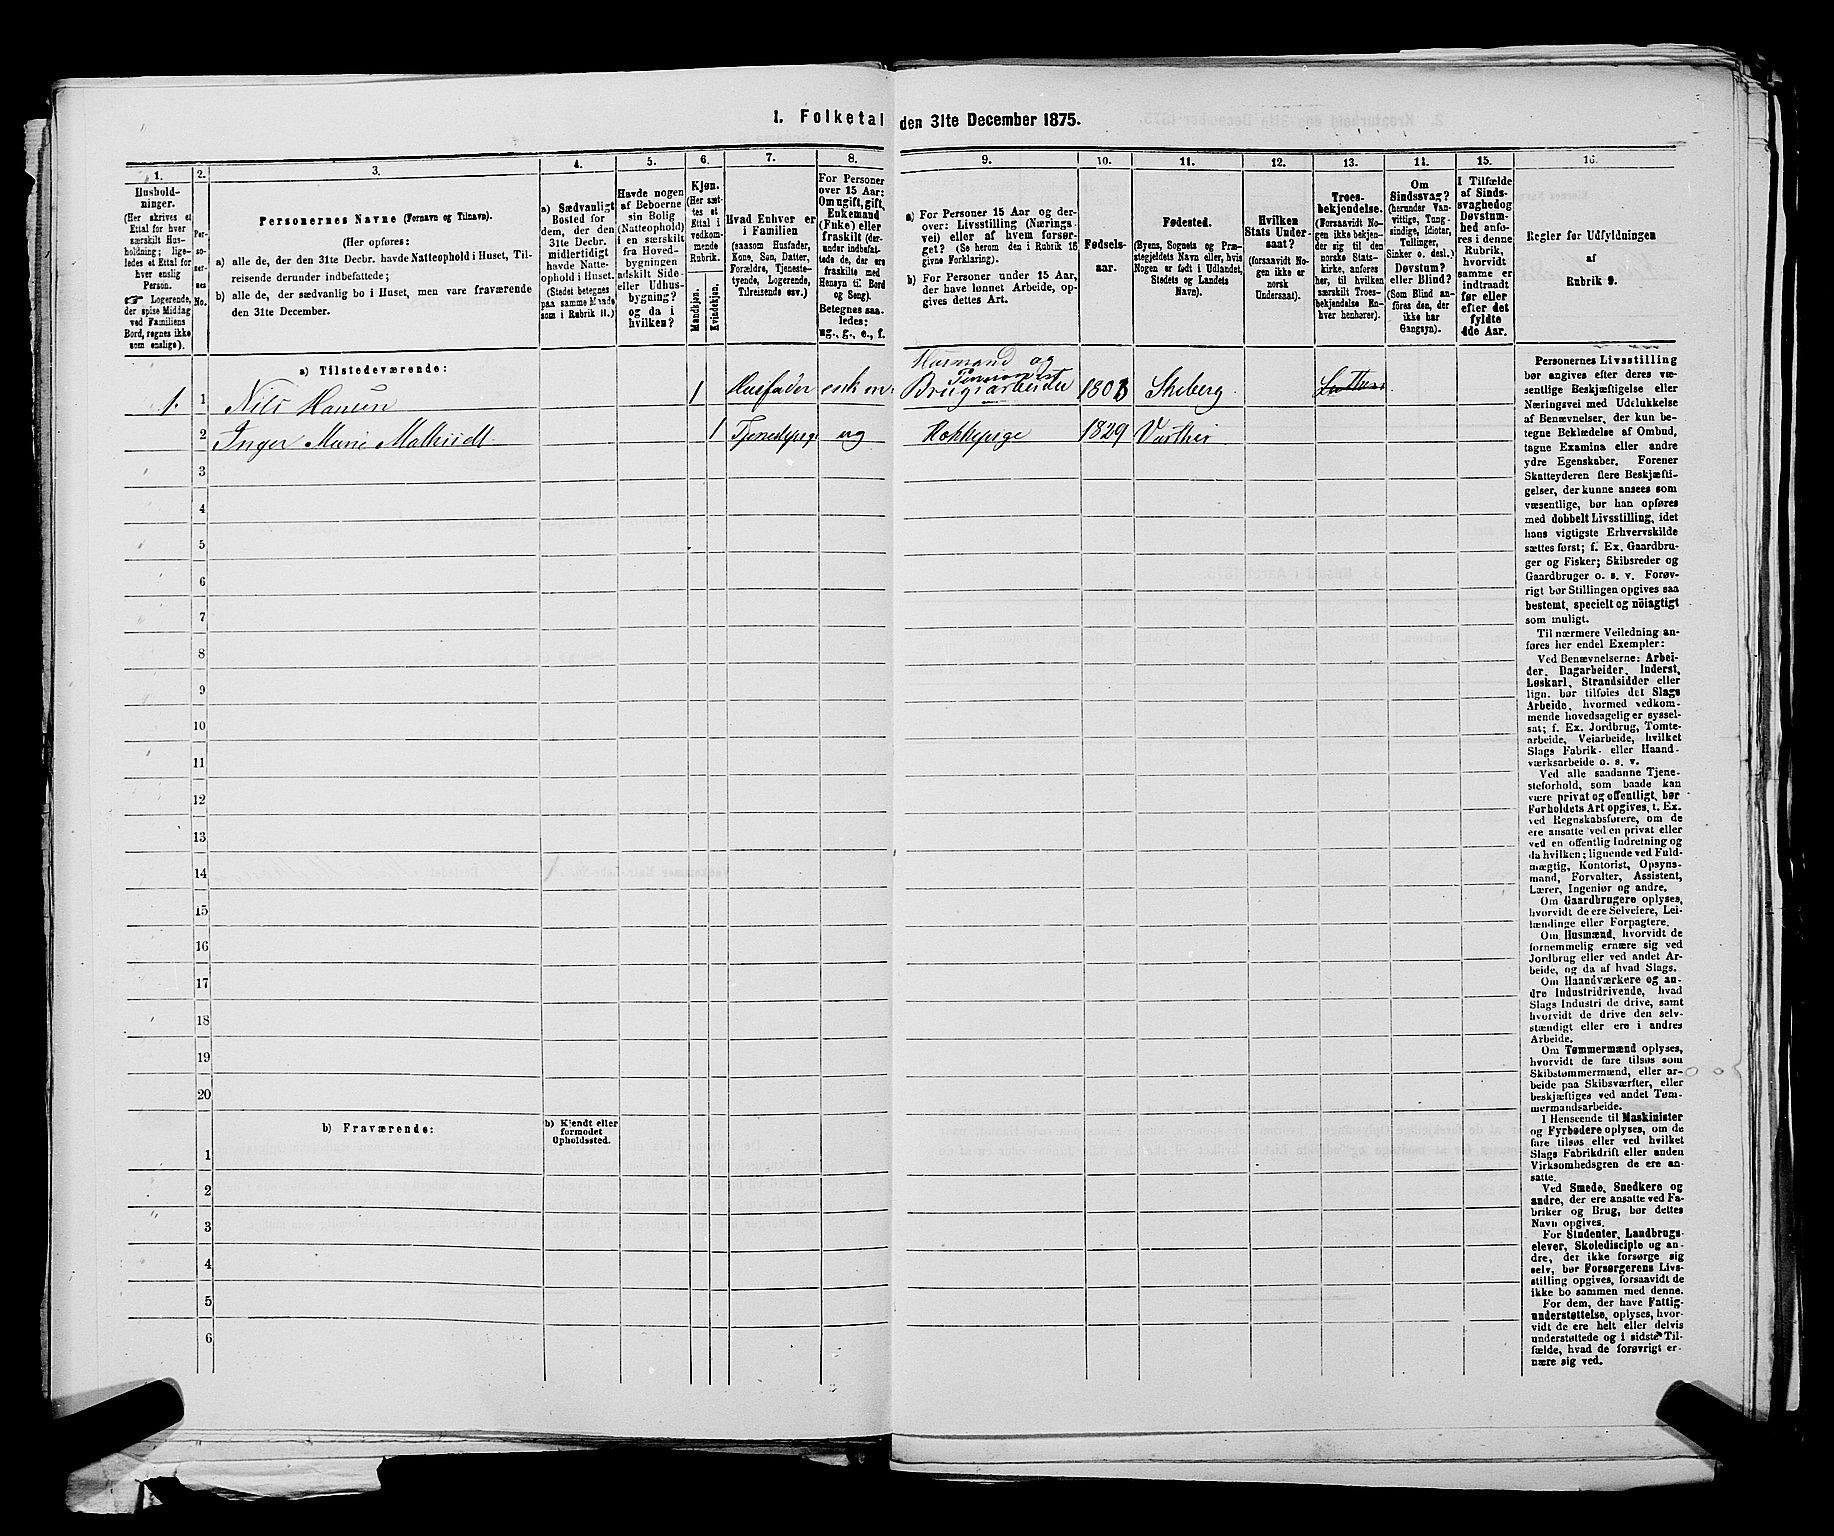 1. Folketal den 31te December 1875.
1.
2.
3.
4.
5.
6.
7.
8.
9.
10.
11.
12.
13.
14.
15.
16.
Hushold-
ninger.
(Her skrives et
Ettal for hver
særskilt Hus-
holdning; lige-
ledes et Ettal for
hver enslig
Person.
☞ Logerende,
der spise Middag
ved Familiens
Bord, regnes ikke
som enslige).
Per-
so-
ner-
nes
No.
Personernes Navne (Fornavn og Tilnavn).
(Her opføres:
a) alle de, der den 31te Decbr. havde Natteophold i Huset, Til-
reisende derunder indbefattede;
b) alle de, der sædvanlig bo i Huset, men vare fraværende
den 31te December.
a) Sædvanligt
Bosted for
dem, der den
31te Decbr.
midlertidigt
havde Natte-
ophold i Huset.
(Stedet betegnes
paa samme Maade
som i Rubrik 11.)
Havde nogen
af Beboerne
sin Bolig
(Natteophold)
i en særskilt
fra Hoved-
bygningen
adskilt Side-
eller Udhus-
bygning?
og da i
hvilken?
Kjøn.
(Her sæt-
tes et
Ettal i
vedkom-
mende
Rubrik.
Mandkjøn.
Kvindekjøn.
Hvad Enhver er
i Familien
(saasom Husfader,
Kone, Søn, Datter,
Forældre, Tjeneste-
tyende, Logerende,
Tilreisende osv.)
For Personer
over 15 Aar:
Om ugift, gift,
Enkemand
(Enke) eller
fraskilt (der-
under indbefat-
tede de, der ere
fraskilte med
Hensyn til Bord
og Seng).
Betegnes saa-
ledes:
ug., g., e., f.
a) For Personer 15 Aar og der-
over: Livsstilling (Nærings-
vei) eller af hvem forsør-
get? (Se herom den i Rubrik 16
givne Forklaring).
b) For Personer under 15 Aar,
der have lønnet Arbeide, op-
gives dettes Art.
Fødsels-
aar.
Fødested.
(Byens, Sognets og Præ-
stegjeldets Navn eller, hvis
Nogen er født i Udlandet,
Stedets og Landets
Navn).
Hvilken
Stats Under-
saat?
(forsaavidt No-
gen ikke er
norsk
Undersaat).
Troes-
bekjendelse.
(Forsaavidt No-
gen ikke bekjen-
der sig til den
norske Stats-
kirke, anføres
her, til hvilken
særskilt Troes-
bekjendelse En-
hver henhører).
Om
Sindssvag?
(herunder Van-
vittige, Tung-
sindige, Idioter,
Tullinger,
Sinker o. desl.)
Døvstum?
eller Blind?
(Som Blind an-
føres den, der
ikke har
Gangsyn).
I Tilfælde
af Sinds-
svaghed og
Døvstum-
hed anfø-
res i denne
Rubrik,
hvorvidt
samme er
indtraadt
før eller
efter det
fyldte
4de Aar.
Regler for Udfyldningen
af
Rubrik 9.
a) Tilstedeværende:
1. 1 Nils Hansen 1 Husfader Husmand og Pensionist Brugsarbeider 1803 Skeberg
2 Inger Marie 1 ug 1829
3
4
5
6
7
8
9
10
11
12
13
14
15
16
17
18
19
20
b) Fraværende:
b) Kjendt eller
formodet
Opholdssted.
1
2
3
4
5
6
Personernes Livsstilling
bør angives efter deres væ-
sentlige Beskjæftigelse eller
Næringsvei med Udelukkelse
af Benævnelser, der kun be-
tegne Beklædelse af Ombud,
tagne Examina eller andre
ydre Egenskaber. Forener
Skatteyderen flere Beskjæfti-
gelser, der kunne ansees som
væsentlige, bør han opføres
med dobbelt Livsstilling, idet
hans vigtigste Erhvervskilde
sættes først; f. Ex. Gaardbru-
ger og Fisker; Skibsreder og
Gaardbruger o. s. v. Forøv-
rigt bør Stillingen opgives saa
bestemt, specielt og nöiagtigt
som muligt.
Til nærmere Veiledning an-
føres her endel Exempler:
Ved Benævnelserne: Arbei-
der, Dagarbeider, Inderst,
Løskarl, Strandsidder eller
lign. bør tilføies det Slags
Arbeide, hvormed vedkom-
mende hovedsagelig er syssel-
sat; f. Ex. Jordbrug, Tomte-
arbeide, Veiarbeide, hvilket
Slags Fabrik- eller Haand-
værksarbeide o. s. v.
Ved alle saadanne Tjene-
steforhold, som baade kan
være privat og offentligt, bør
Forholdets Art opgives, t. Ex.
ved Regnskabsførere, om de
ere ansatte ved en privat eller
ved en offentlig Indretning og
da hvilken; lignende ved Fuld-
mægtig, Kontorist, Opsyns-
mand, Forvalter, Assistent,
Lærer, Ingeniør og andre.
Om Gaardbrugere oplyses,
hvorvidt de ere Selveiere, Lei-
lændinge eller Forpagtere.
Om Husmænd, hvorvidt de
fornemmelig ernære sig ved
Jordbrug eller ved andet Ar-
beide, og da af hvad Slags.
Om Haandværkere og an-
dre Industridrivende, hvad
Slags Industri de drive, samt
hvorvidt de drive den selv-
stændigt eller ere i andres
Arbeide.
Om Tømmermænd oplyses,
hvorvidt de fare tilsøs som
Skibstømmermænd, eller ar-
beide paa Skibsværfter, eller
beskjæftiges ved andet Tøm-
mermandsarbeide.
I Henseende til Maskinister
og Fyrbødere oplyses, om de
fare tilsøs eller ved hvilket
Slags Fabrikdrift eller anden
Virksomhedsgren de ere an-
satte.
Ved Smede, Snedkere og
andre, der ere ansatte ved Fa-
briker og Brug, bør dettes
Navn opgives.
For Studenter, Landbrugs-
elever, Skoledisciple og an-
dre, der ikke forsørge sig
selv, bør Forsørgerens Livs-
stilling opgives, forsaavidt de
ikke bo sammen med denne.
For dem, der have Fattig-
understøttelse, oplyses, hvor-
vidt de ere helt eller delvis
understøttede og i sidste Til-
fælde, hvad de forøvrigt er-
nære sig ved.